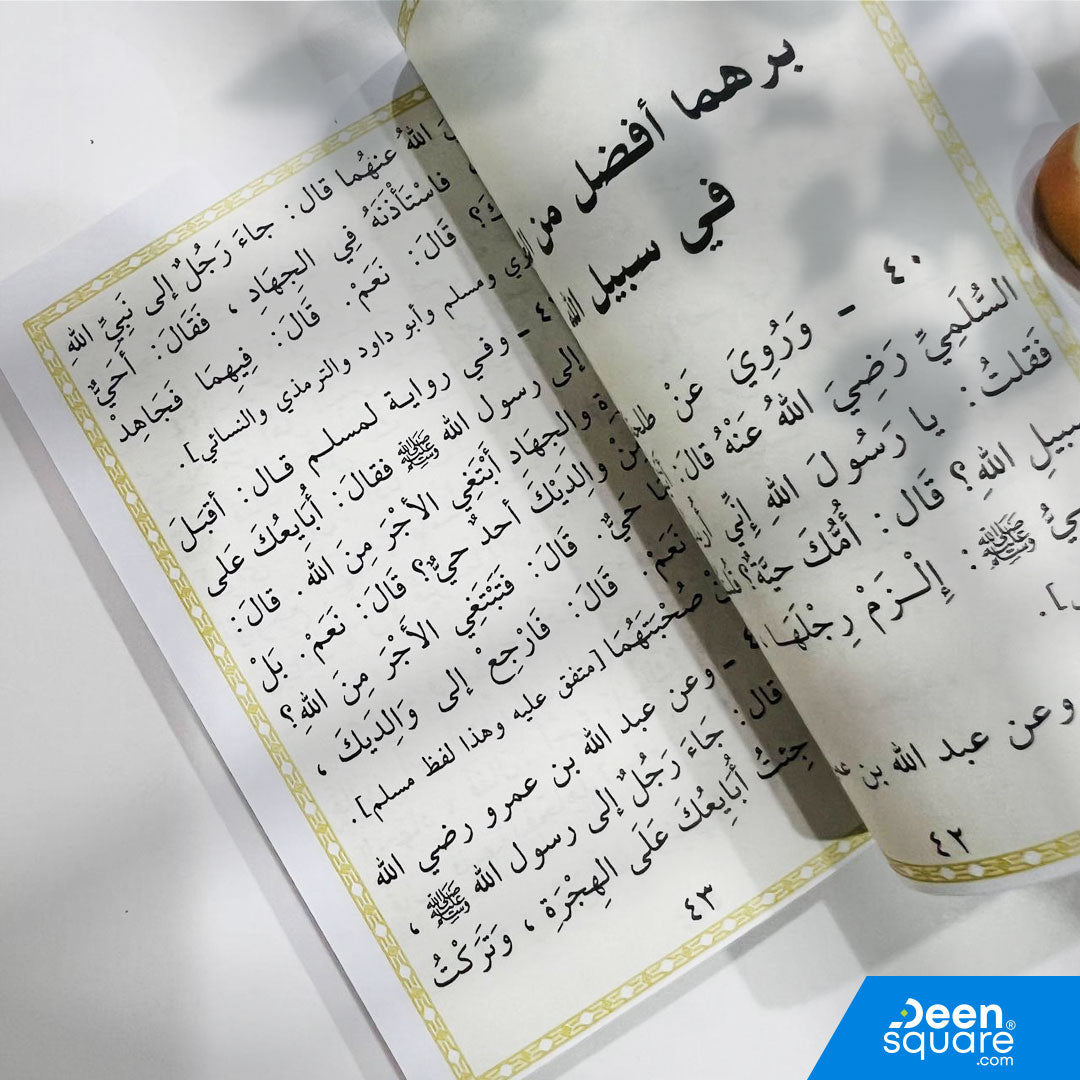 برهما أفضل من
في سبيل الله
٤٠ - وَرُوِيَ عَنْ
السُّلَمِيِّ رَضِيَ اللهُ عَنْهُ قَالَ:
فَقلتُ: يا رَسُولَ اللهِ إنِّي
سبيلِ اللهِ؟ قَال: أُمُّكَ حيَّةٌ؟
ﷺ: إِلْـزَمْ رِجْلَهَا
وعن عبد الله بن
٤٢
اللهُ عنهُما قال: جاءَ رَجُلٌ إلى نَبيِّ اللهِ
فاسْتَأْذَنَهُ فِي الجِهَادِ، فَقَالَ: أَحَيٌّ
قَالَ: نَعَمْ. قَالَ: فِيهِمَا فَجَاهِدْ
ومسلم وأبو داود والترمذي والنسائي].
- وفي رواية لمسلم قال: أقبَلَ
إلى رسول الله ﷺ فقالَ: أُبَايعُكَ عَلى
والجِهَادِ أبْتَغِي الأجْرَ مِنَ الله. قالَ:
وَالِدَيْكَ أحدٌ حيٌّ؟ قَالَ: نَعَمْ. بَلْ
حيٌّ. قَالَ: فَتَبْتَغِي الأَجْرَ مِنَ اللهِ؟
نَعَمْ. قَالَ: فَارْجِعْ إلى وَالِدَيكَ،
صُحْبَتَهُمَا [متفق عليه وهذا لفظ مسلم].
- وعن عبد الله بن عمرو رضي الله
قال: جَاءَ رَجُلٌ إلى رسول الله ﷺ،
جِئتُ أُبَايعُكَ عَلَى الهِجْرَةِ، وَتَرَكْتُ
٤٣
Deen
square®
.com